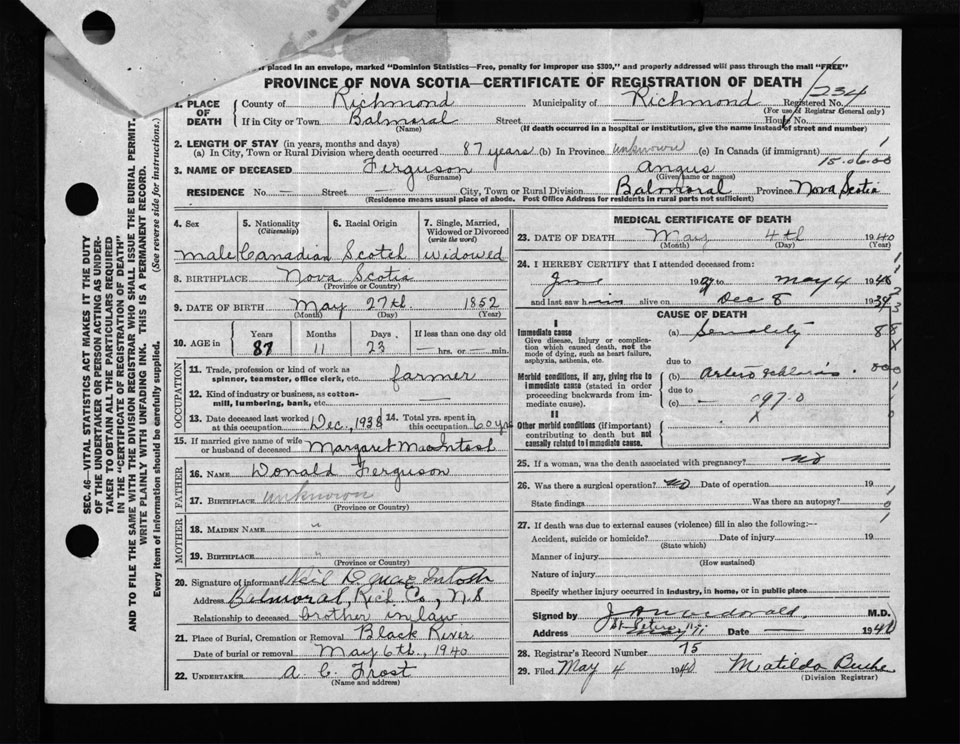 placed in an envelope, marked "Dominion Statistics—Free, penalty for improper use $300," and properly addressed will pass through the mail "FREE"
PROVINCE OF NOVA SCOTIA—CERTIFICATE OF REGISTRATION OF DEATH
234
1. PLACE OF DEATH County of Richmond Municipality of Richmond Registered No.
(For use of Registrar General only)
If in City or Town Balmoral Street — House No.
(Name) (If death occurred in a hospital or institution, give the name instead of street and number)
2. LENGTH OF STAY (in years, months and days)
(a) In City, Town or Rural Division where death occurred 87 years (b) In Province unknown (c) In Canada (if immigrant)
15.06.00
3. NAME OF DECEASED Ferguson Angus
(Surname) (Given name or names)
RESIDENCE No. — Street — City, Town or Rural Division Balmoral Province Nova Scotia
(Residence means usual place of abode. Post Office Address for residents in rural parts not sufficient)
4. Sex 5. Nationality (Citizenship) 6. Racial Origin 7. Single, Married, Widowed or Divorced (write the word)
male Canadian Scotch widowed
8. BIRTHPLACE Nova Scotia
(Province or Country)
9. DATE OF BIRTH May 27th 1852
(Month) (Day) (Year)
10. AGE in Years Months Days If less than one day old
87 11 23 — hrs. or — min.
OCCUPATION
11. Trade, profession or kind of work as spinner, teamster, office clerk, etc. farmer
12. Kind of industry or business, as cotton-mill, lumbering, bank, etc. —
13. Date deceased last worked at this occupation Dec, 1938 14. Total yrs. spent in this occupation 60 yrs
15. If married give name of wife or husband of deceased Margaret MacIntosh
FATHER
16. NAME Donald Ferguson
17. BIRTHPLACE unknown
(Province or Country)
MOTHER
18. MAIDEN NAME "
19. BIRTHPLACE "
(Province or Country)
20. Signature of informant Neil D. MacIntosh
Address Balmoral, Rich. Co., N.S
Relationship to deceased brother in law
21. Place of Burial, Cremation or Removal Black River
Date of burial or removal May 6th, 1940
22. UNDERTAKER A. C. Frost
(Name and address)
MEDICAL CERTIFICATE OF DEATH
23. DATE OF DEATH May 4th 1940
(Month) (Day) (Year)
24. I HEREBY CERTIFY that I attended deceased from:
to May 4 1940
and last saw him alive on Dec 8 1939
CAUSE OF DEATH
I
Immediate cause (a) Senility
Give disease, injury or complication which caused death, not the mode of dying, such as heart failure, asphyxia, asthenia, etc.
due to
Morbid conditions, if any, giving rise to immediate cause (stated in order proceeding backwards from immediate cause). (b)
due to
(c) — 097.0
II
Other morbid conditions (if important) contributing to death but not causally related to immediate cause.
25. If a woman, was the death associated with pregnancy? no
26. Was there a surgical operation? no Date of operation 19
State findings Was there an autopsy?
27. If death was due to external causes (violence) fill in also the following:—
Accident, suicide or homicide? Date of injury 19
(State which)
Manner of injury
(How sustained)
Nature of injury
Specify whether injury occurred in industry, in home, or in public place
Signed by M.D.
Address St Peters Date — 1940
28. Registrar's Record Number 75
29. Filed May 4 1940 Matilda
(Division Registrar)
SEC. 46—VITAL STATISTICS ACT MAKES IT THE DUTY
OF THE UNDERTAKER OR PERSON ACTING AS UNDER-
TAKER TO OBTAIN ALL THE PARTICULARS REQUIRED
IN THE "CERTIFICATE OF REGISTRATION OF DEATH"
AND TO FILE THE SAME WITH THE DIVISION REGISTRAR WHO SHALL ISSUE THE BURIAL PERMIT.
WRITE PLAINLY WITH UNFADING INK. THIS IS A PERMANENT RECORD.
Every item of information should be carefully supplied. (See reverse side for instructions.)